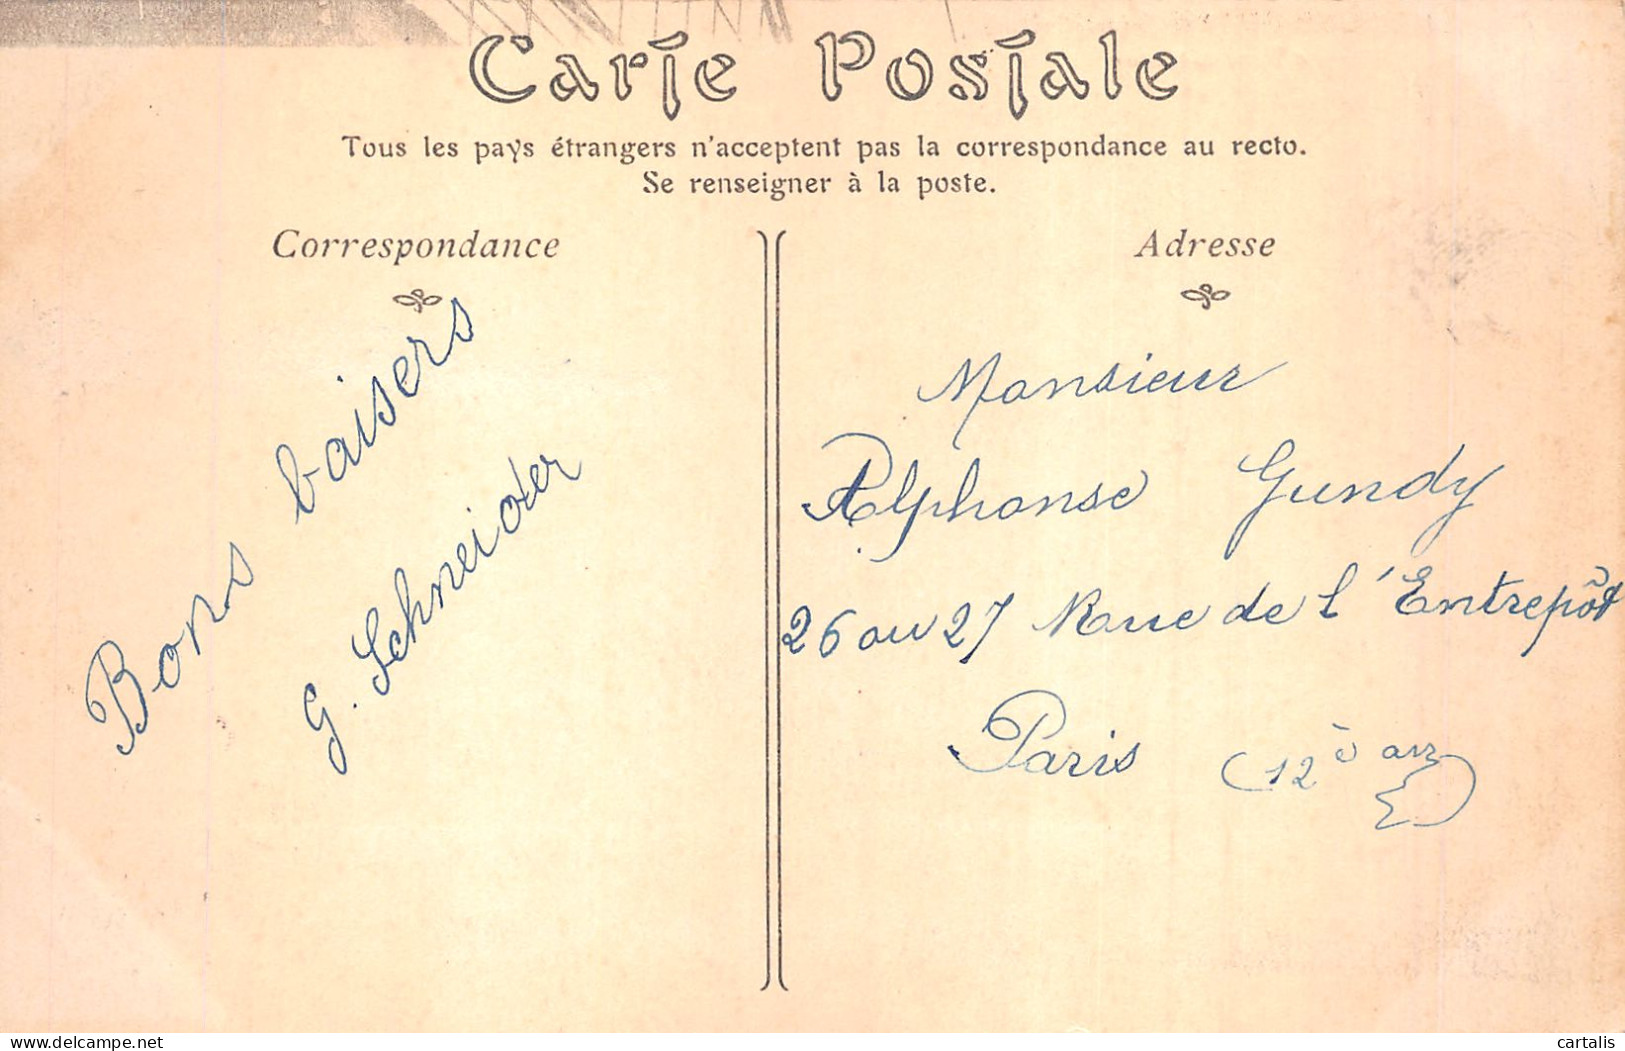 Carte Postale
Tous les pays étrangers n'acceptent pas la correspondance au recto.
Se renseigner à la poste.
Correspondance
Adresse
Bons baisers
G. Schneider
Monsieur
Alphonse Gundy
26 ou 27 Rue de l'Entrepôt
Paris (12è arr)
cartalis
www.delcampe.net